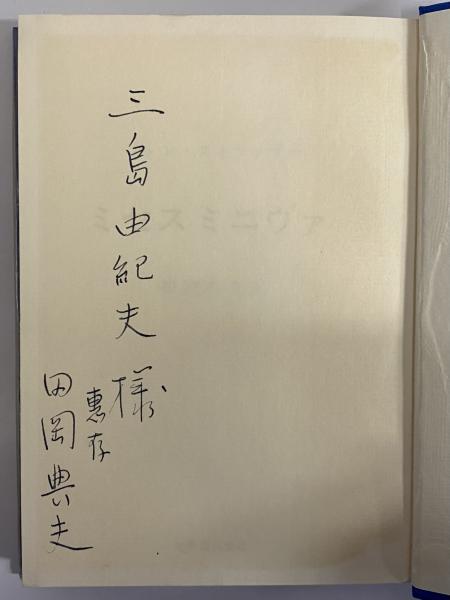 三島由紀夫様
惠存
田岡典夫